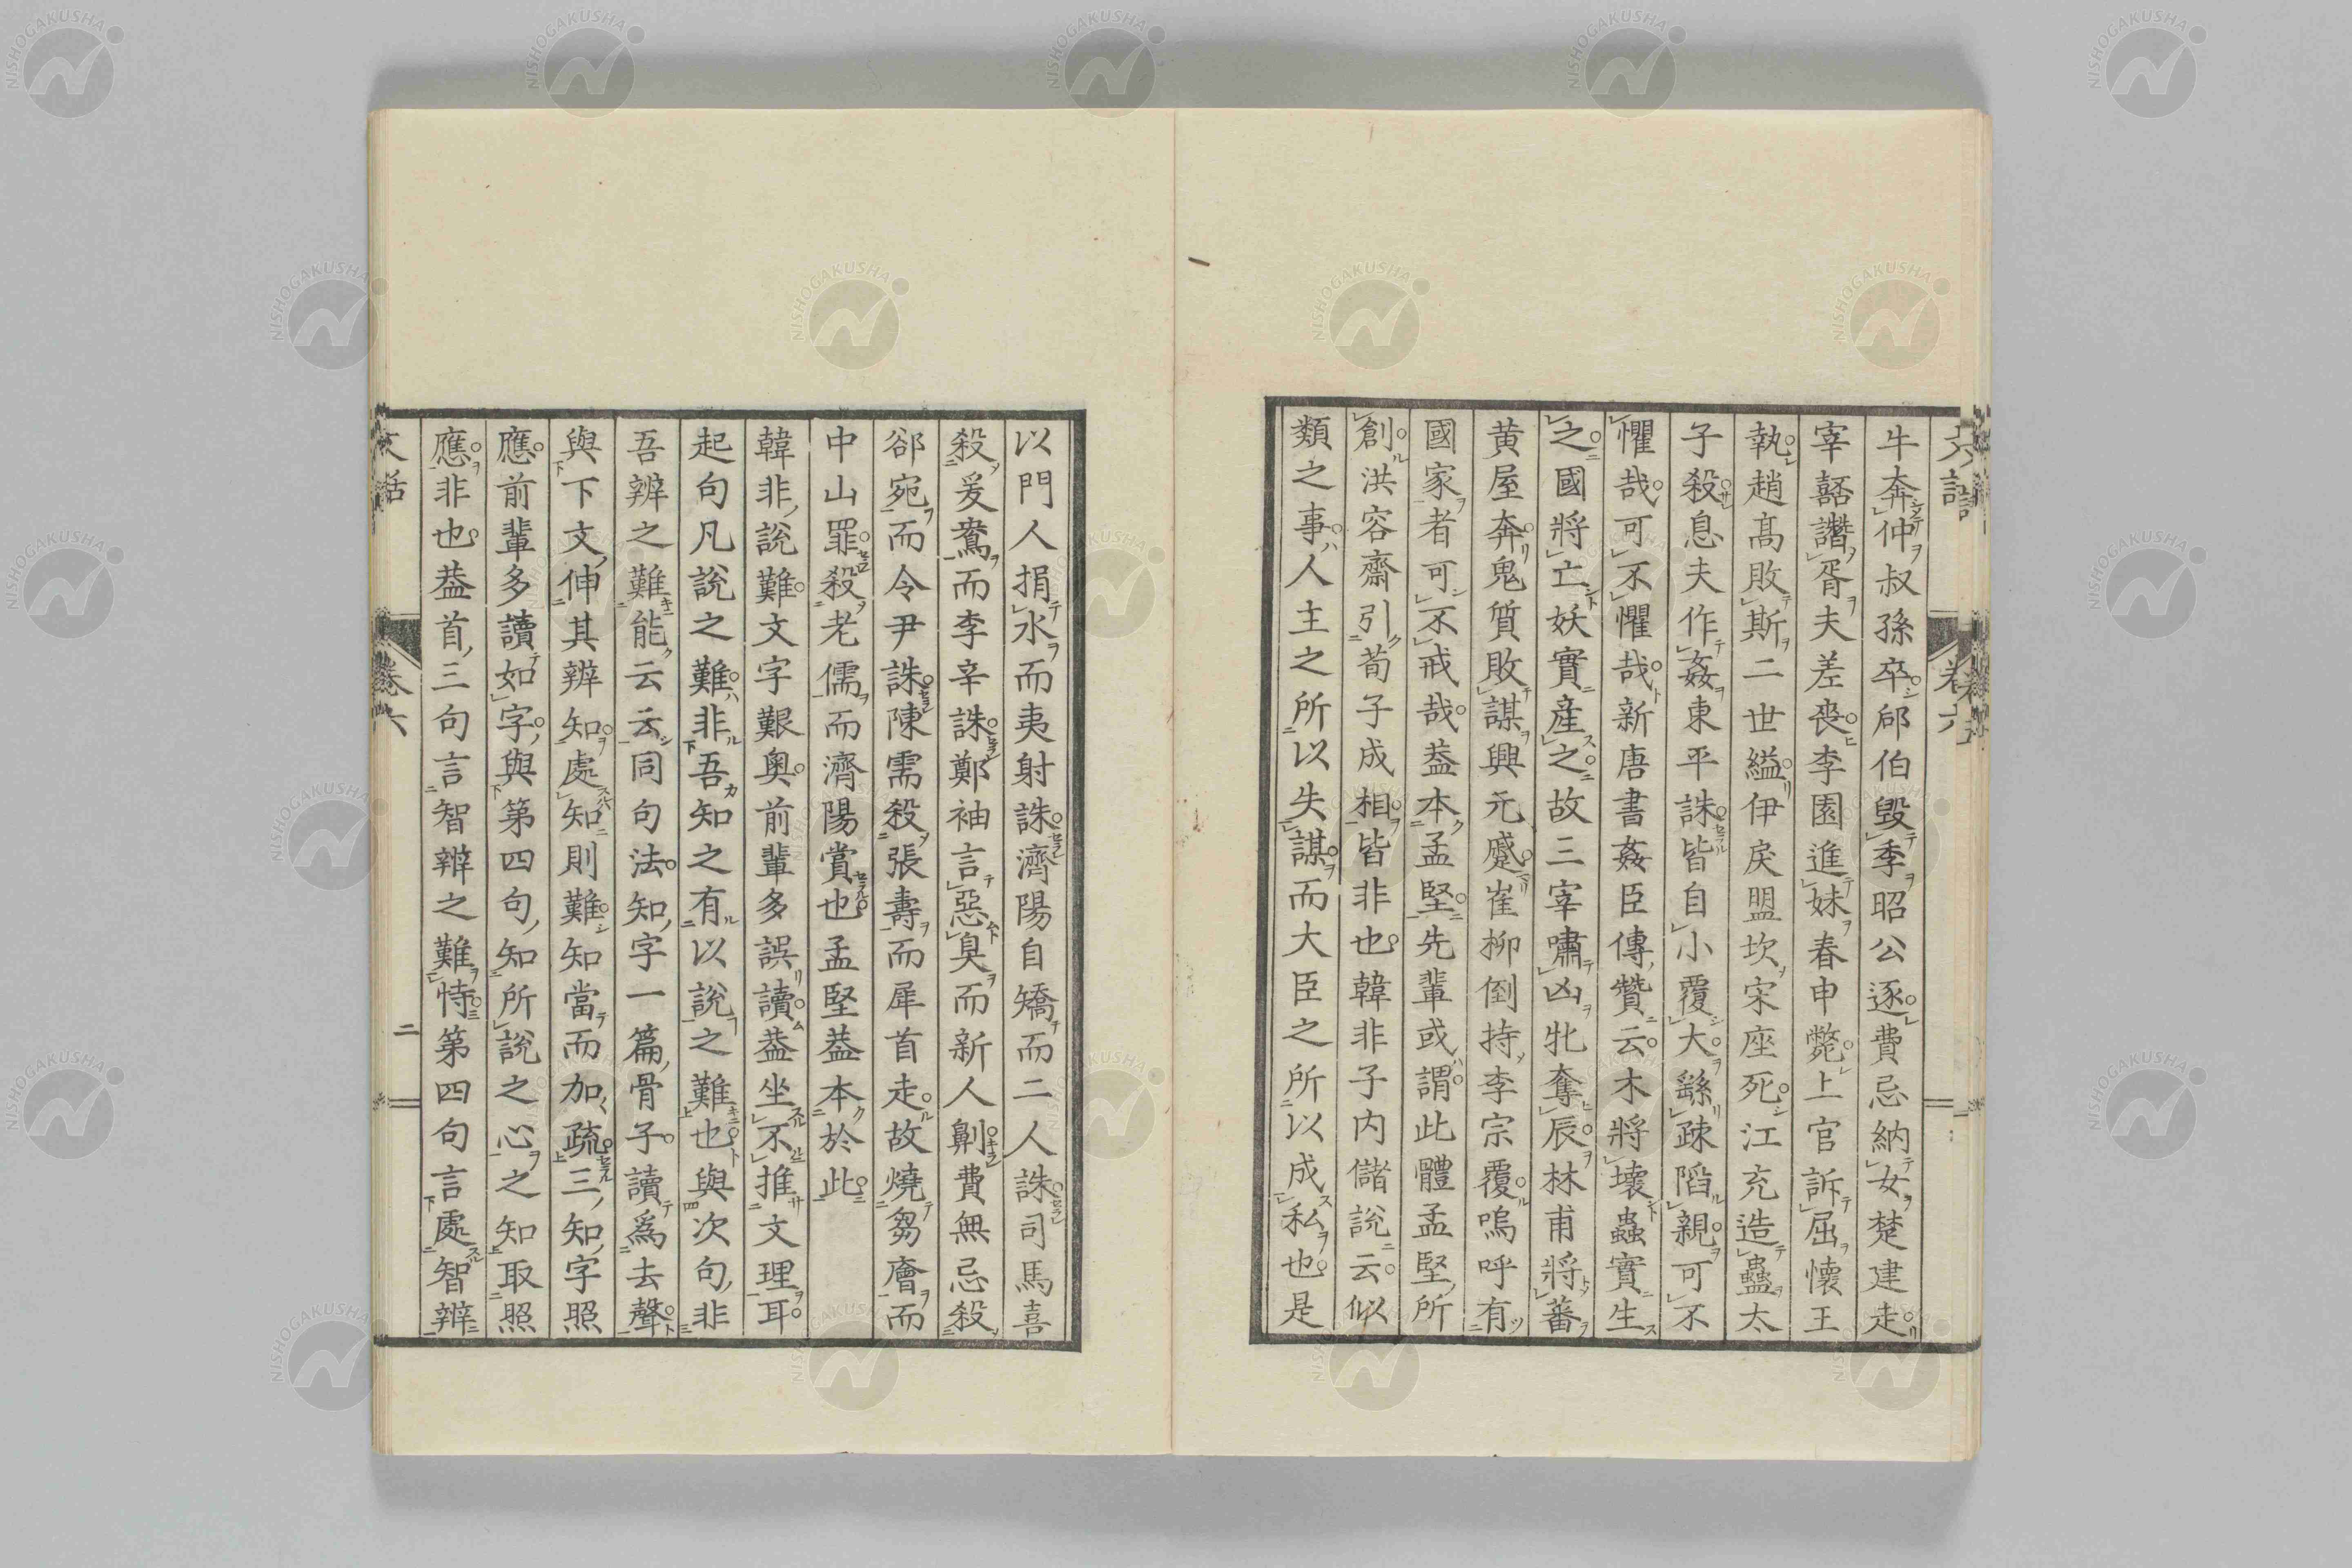 牛奔仲叔孫卒郈伯毀季昭公逐費忌納女楚建走
宰嚭譖胥夫差喪李園進妹春申斃上官訴屈懷王
執趙高敗斯二世縊伊戾盟坎宋座死江充造蠱太
子殺息夫作姦東平誅皆自小覆大繇疎陷親可不
懼哉可不懼哉新唐書姦臣傳贊云木將壞蟲實生
之國將亡妖實產之故三宰嘯凶牝奪辰林甫將蕃
黃屋奔鬼質敗謀興元蹙崔柳倒持李宗覆嗚呼有
國家者可不戒哉葢本孟堅先輩或謂此體孟堅所
創洪容齋引荀子成相皆非也韓非子內儲說云似
類之事人主之所以失謀而大臣之所以成私也是
以門人捐水而夷射誅濟陽自矯而二人誅司馬喜
殺爰騫而季辛誅鄭袖言惡臭而新人劓費無忌殺
郤宛而令尹誅陳需殺張壽而犀首走故燒芻廥而
中山罪殺老儒而濟陽賞也孟堅葢本於此
韓非說難文字艱奧前輩多誤讀葢坐不推文理耳
起句凡說之難非吾知之有以說之難也與次句非
吾辨之難能云云同句法知字一篇骨子讀爲去聲
與下文伸其辨知處知則難知當而加疏三知字照
應前輩多讀如字與第四句知所說之心之知取照
應非也葢首三句言智辨之難恃第四句言處智辨
文話
卷六
二